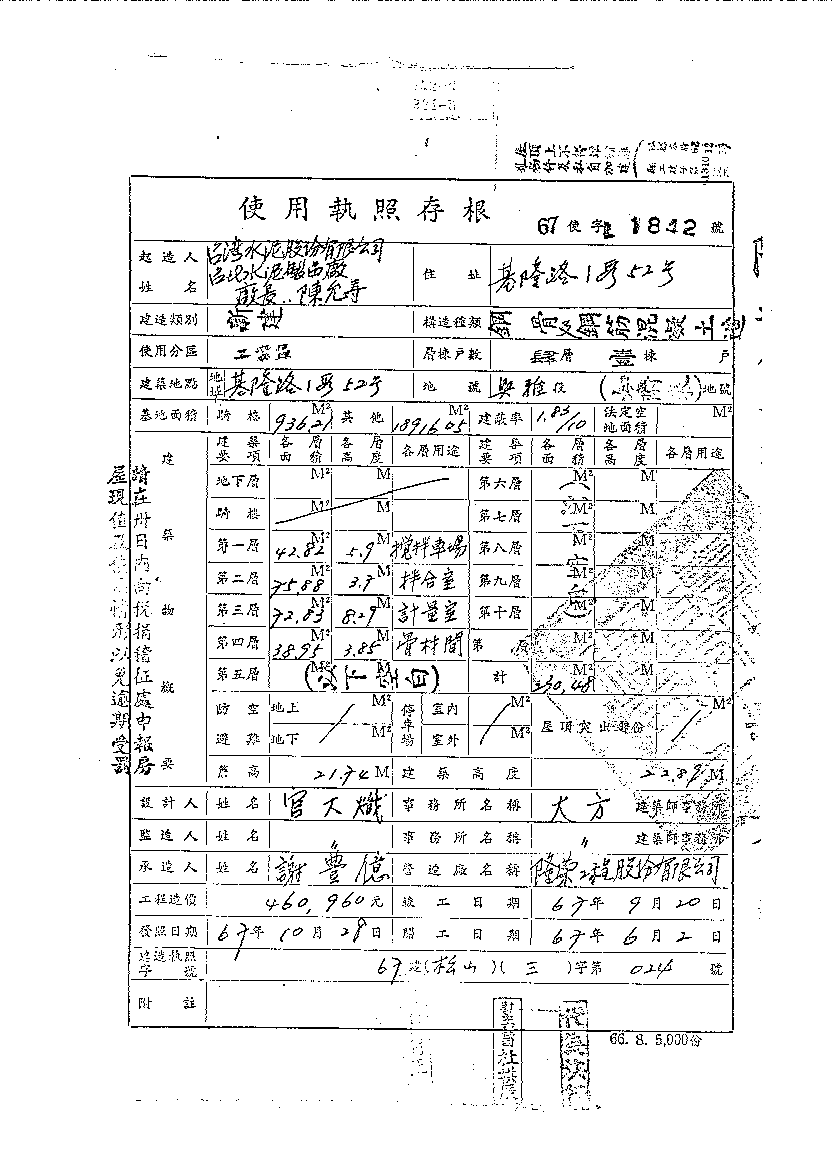 使用執照存根
67使字 1842號
起造人姓名 台湾水泥股份有限公司 住址 基隆路1号52号
台北水泥製品廠
廠長 陳允壽
建造類別 新建 構造種類 鋼骨及鋼筋混凝土造
使用分區 工業區 層棟戶數 肆層 壹棟 戶
建築地點 地址 基隆路1号52号 地號 興雅段 地號
基地面積 騎樓 936.21 M² 其他 18916.05 M² 建蔽率 1.83/10 法定空地面積 M²
建築物概要
建築要項 各層面積 各層高度 各層用途 建築要項 各層面積 各層高度 各層用途
地下層 M² M 第六層 M² M
騎樓 M² M 第七層 M² M
第一層 42.82 M² 5.9 M 攪拌車場 第八層 M² M
第二層 75.88 M² 3.7 M 拌合室 第九層 M² M
第三層 72.83 M² 8.29 M 計量室 第十層 M² M
第四層 38.95 M² 3.85 M 骨材間 第 層 M² M
第五層 (以下空白) M² M 計 230.48 M² M
(以下空白)
防空避難 地上 M² 停車場 室內 M² 屋頂突出部份 M²
地下 M² 室外 M²
簷高 21.74 M 建築高度 22.89 M
設計人 姓名 官大熾 事務所名稱 大方 建築師事務所
監造人 姓名 〃 事務所名稱 〃 建築師事務所
承造人 姓名 謝豐億 營造廠名稱 隆榮工程股份有限公司
工程造價 460,960元 竣工日期 67年9月20日
發照日期 67年10月28日 開工日期 67年6月2日
建造執照字號 67建(松山)(三)字第024號
附註
請在卅日內向稅捐稽征處申報房
屋現值及使 情形以免逾期受罰
66. 8. 5,000份